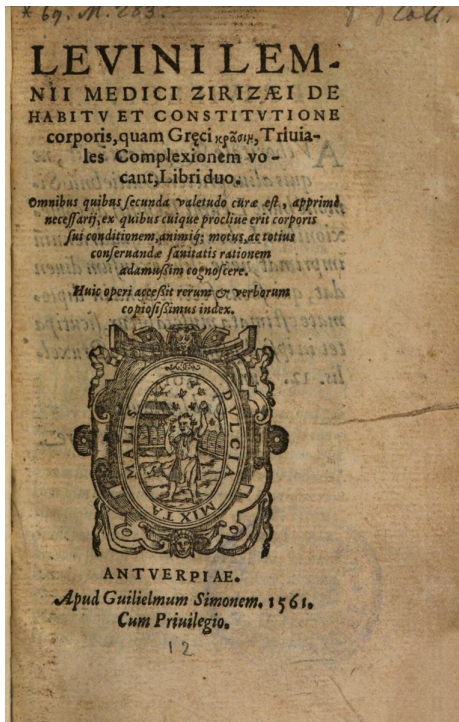 * 69. M. 283.
LEVINI LEM-
NII MEDICI ZIRIZÆI DE
HABITV ET CONSTITVTIONE
corporis, quam Gręci κρᾶσιν, Triuia-
les Complexionem vo-
cant, Libri duo.
Omnibus quibus secunda valetudo curæ est, apprimè
necessarij, ex quibus cuique procliue erit corporis
sui conditionem, animiq; motus, ac totius
conseruandæ sanitatis rationem
adamußim cognoscere.
Huic operi acceßit rerum & verborum
copiosißimus index.
MALIS MIXTA DVLCIA
ANTVERPIAE.
Apud Guilielmum Simonem. 1561.
Cum Priuilegio.
12